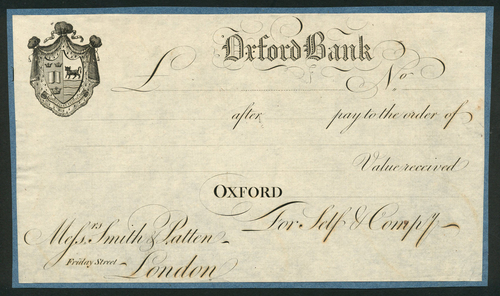 Oxford Bank
£ No
after pay to the order of
Value received
OXFORD
For Self & Compy
Messrs Smith & Patten
Friday Street
London